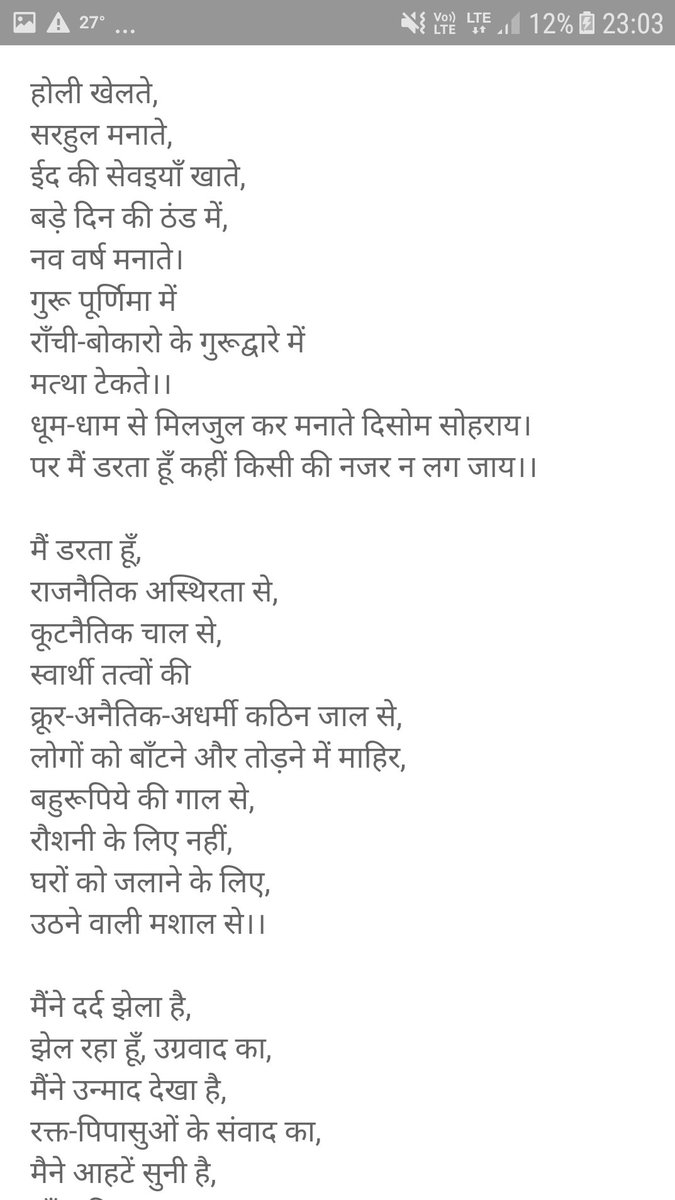 27° ...
Vo)) LTE LTE 12% 23:03
होली खेलते,
सरहुल मनाते,
ईद की सेवइयाँ खाते,
बड़े दिन की ठंड में,
नव वर्ष मनाते।
गुरू पूर्णिमा में
राँची-बोकारो के गुरूद्वारे में
मत्था टेकते।।
धूम-धाम से मिलजुल कर मनाते दिसोम सोहराय।
पर मैं डरता हूँ कहीं किसी की नजर न लग जाय।।
मैं डरता हूँ,
राजनैतिक अस्थिरता से,
कूटनैतिक चाल से,
स्वार्थी तत्वों की
क्रूर-अनैतिक-अधर्मी कठिन जाल से,
लोगों को बाँटने और तोड़ने में माहिर,
बहुरूपिये की गाल से,
रौशनी के लिए नहीं,
घरों को जलाने के लिए,
उठने वाली मशाल से।।
मैंने दर्द झेला है,
झेल रहा हूँ, उग्रवाद का,
मैंने उन्माद देखा है,
रक्त-पिपासुओं के संवाद का,
मैने आहटें सुनी है,